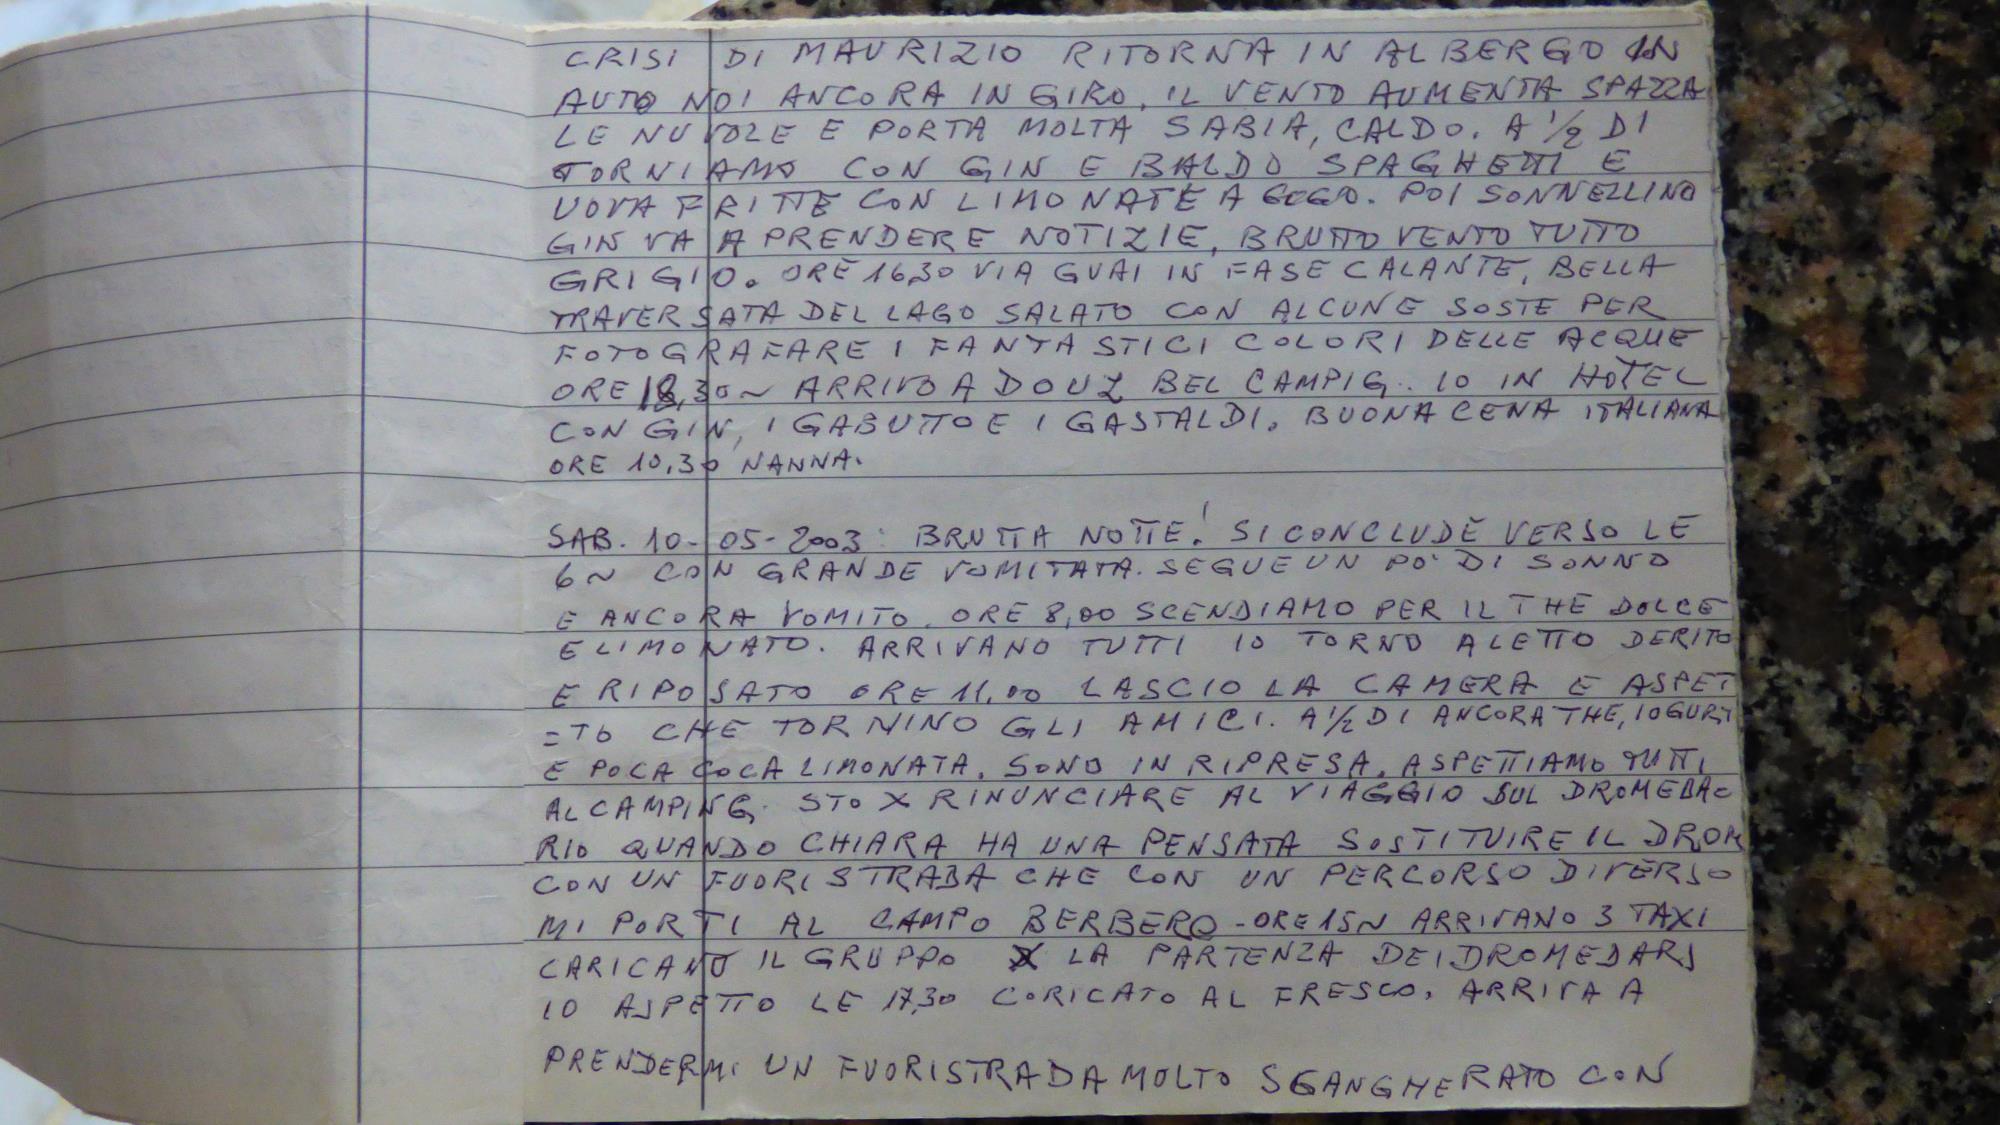 CRISI DI MAURIZIO RITORNA IN ALBERGO IN
AUTO NOI ANCORA IN GIRO, IL VENTO AUMENTA SPAZZA
LE NUVOLE E PORTA MOLTA SABIA, CALDO. A 1/2 DI
TORNIAMO CON GIN E BALDO SPAGHETTI E
UOVA FRITTE CON LIMONATE A GOGO. POI SONNELLINO
GIN VA A PRENDERE NOTIZIE, BRUTTO VENTO TUTTO
GRIGIO. ORE 16,30 VIA GUAI IN FASE CALANTE, BELLA
TRAVERSATA DEL LAGO SALATO CON ALCUNE SOSTE PER
FOTOGRAFARE I FANTASTICI COLORI DELLE ACQUE
ORE 18,30 ~ ARRIVO A DOUZ BEL CAMPIG.. IO IN HOTEL
CON GIN, I GABUTTO E I GASTALDI. BUONA CENA ITALIANA
ORE 10,30 NANNA.
SAB. 10-05-2003: BRUTTA NOTTE! SI CONCLUDE VERSO LE
6 ~ CON GRANDE VOMITATA. SEGUE UN PO' DI SONNO
E ANCORA VOMITO. ORE 8,00 SCENDIAMO PER IL THE DOLCE
E LIMONATO. ARRIVANO TUTTI IO TORNO A LETTO DERITO
E RIPOSATO ORE 11,00 LASCIO LA CAMERA E ASPET
=TO CHE TORNINO GLI AMICI. A 1/2 DI ANCORA THE, IOGURT
E POCA COCA LIMONATA. SONO IN RIPRESA. ASPETTIAMO TUTTI
AL CAMPING. STO X RINUNCIARE AL VIAGGIO SUL DROMEDAC
RIO QUANDO CHIARA HA UNA PENSATA SOSTITUIRE IL DROM
CON UN FUORISTRADA CHE CON UN PERCORSO DIVERSO
MI PORTI AL CAMPO BERBERO - ORE 15 ~ ARRIVANO 3 TAXI
CARICANO IL GRUPPO X LA PARTENZA DEI DROMEDARI
IO ASPETTO LE 17,30 CORICATO AL FRESCO. ARRIVA A
PRENDERMI UN FUORISTRADA MOLTO SGANGHERATO CON